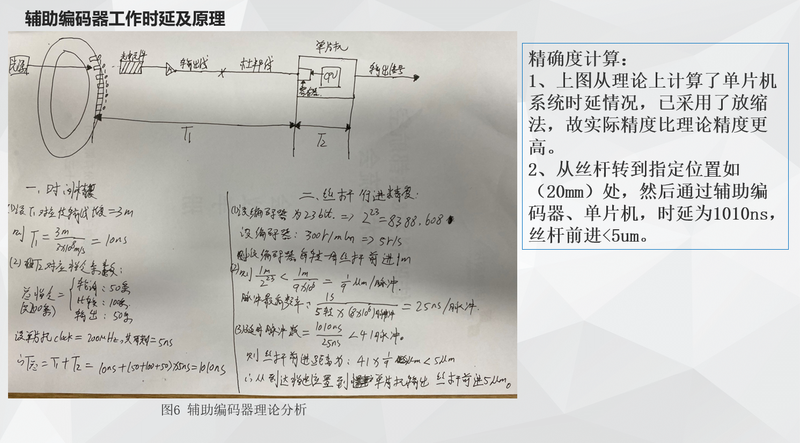 辅助编码器工作时延及原理
光源
光敏元件
输出线
杜邦线
单片机
CPU
输出信号
T1
T2
一、时间计算
(1)设T1对应传输线长度=3m
则T1=3m/3×10⁸m/s=10ns
(2)程T2对应指令条数:
总指令=
输入:50条
比较:100条
输出:50条
(共200条)
设单片机clock=200MHz,其周期=5ns
∴T总=T1+T2=10ns+(50+100+50)×5ns=1010ns
二、丝杆前进精度:
(1)设编码器为23bit. => 2²³=8388,608
设编码器:300r/min => 5r/s
则设编码器每转一周丝杆前进1m
(2)则1m/2²³<1m/9×10⁶=1/9μm/脉冲.
脉冲最高频率:1s/5转×(8×10⁶)脉冲=25ns/脉冲.
(3)延时脉冲数=1010ns/25ns<41脉冲。
则丝杆前进距离为:41×1/9μm<5μm
∴从到达指定位置到单片机输出丝杆前进5μm。
图6 辅助编码器理论分析
精确度计算:
1、上图从理论上计算了单片机
系统时延情况,已采用了放缩
法,故实际精度比理论精度更
高。
2、从丝杆转到指定位置如
(20mm)处,然后通过辅助编
码器、单片机,时延为1010ns,
丝杆前进<5um。